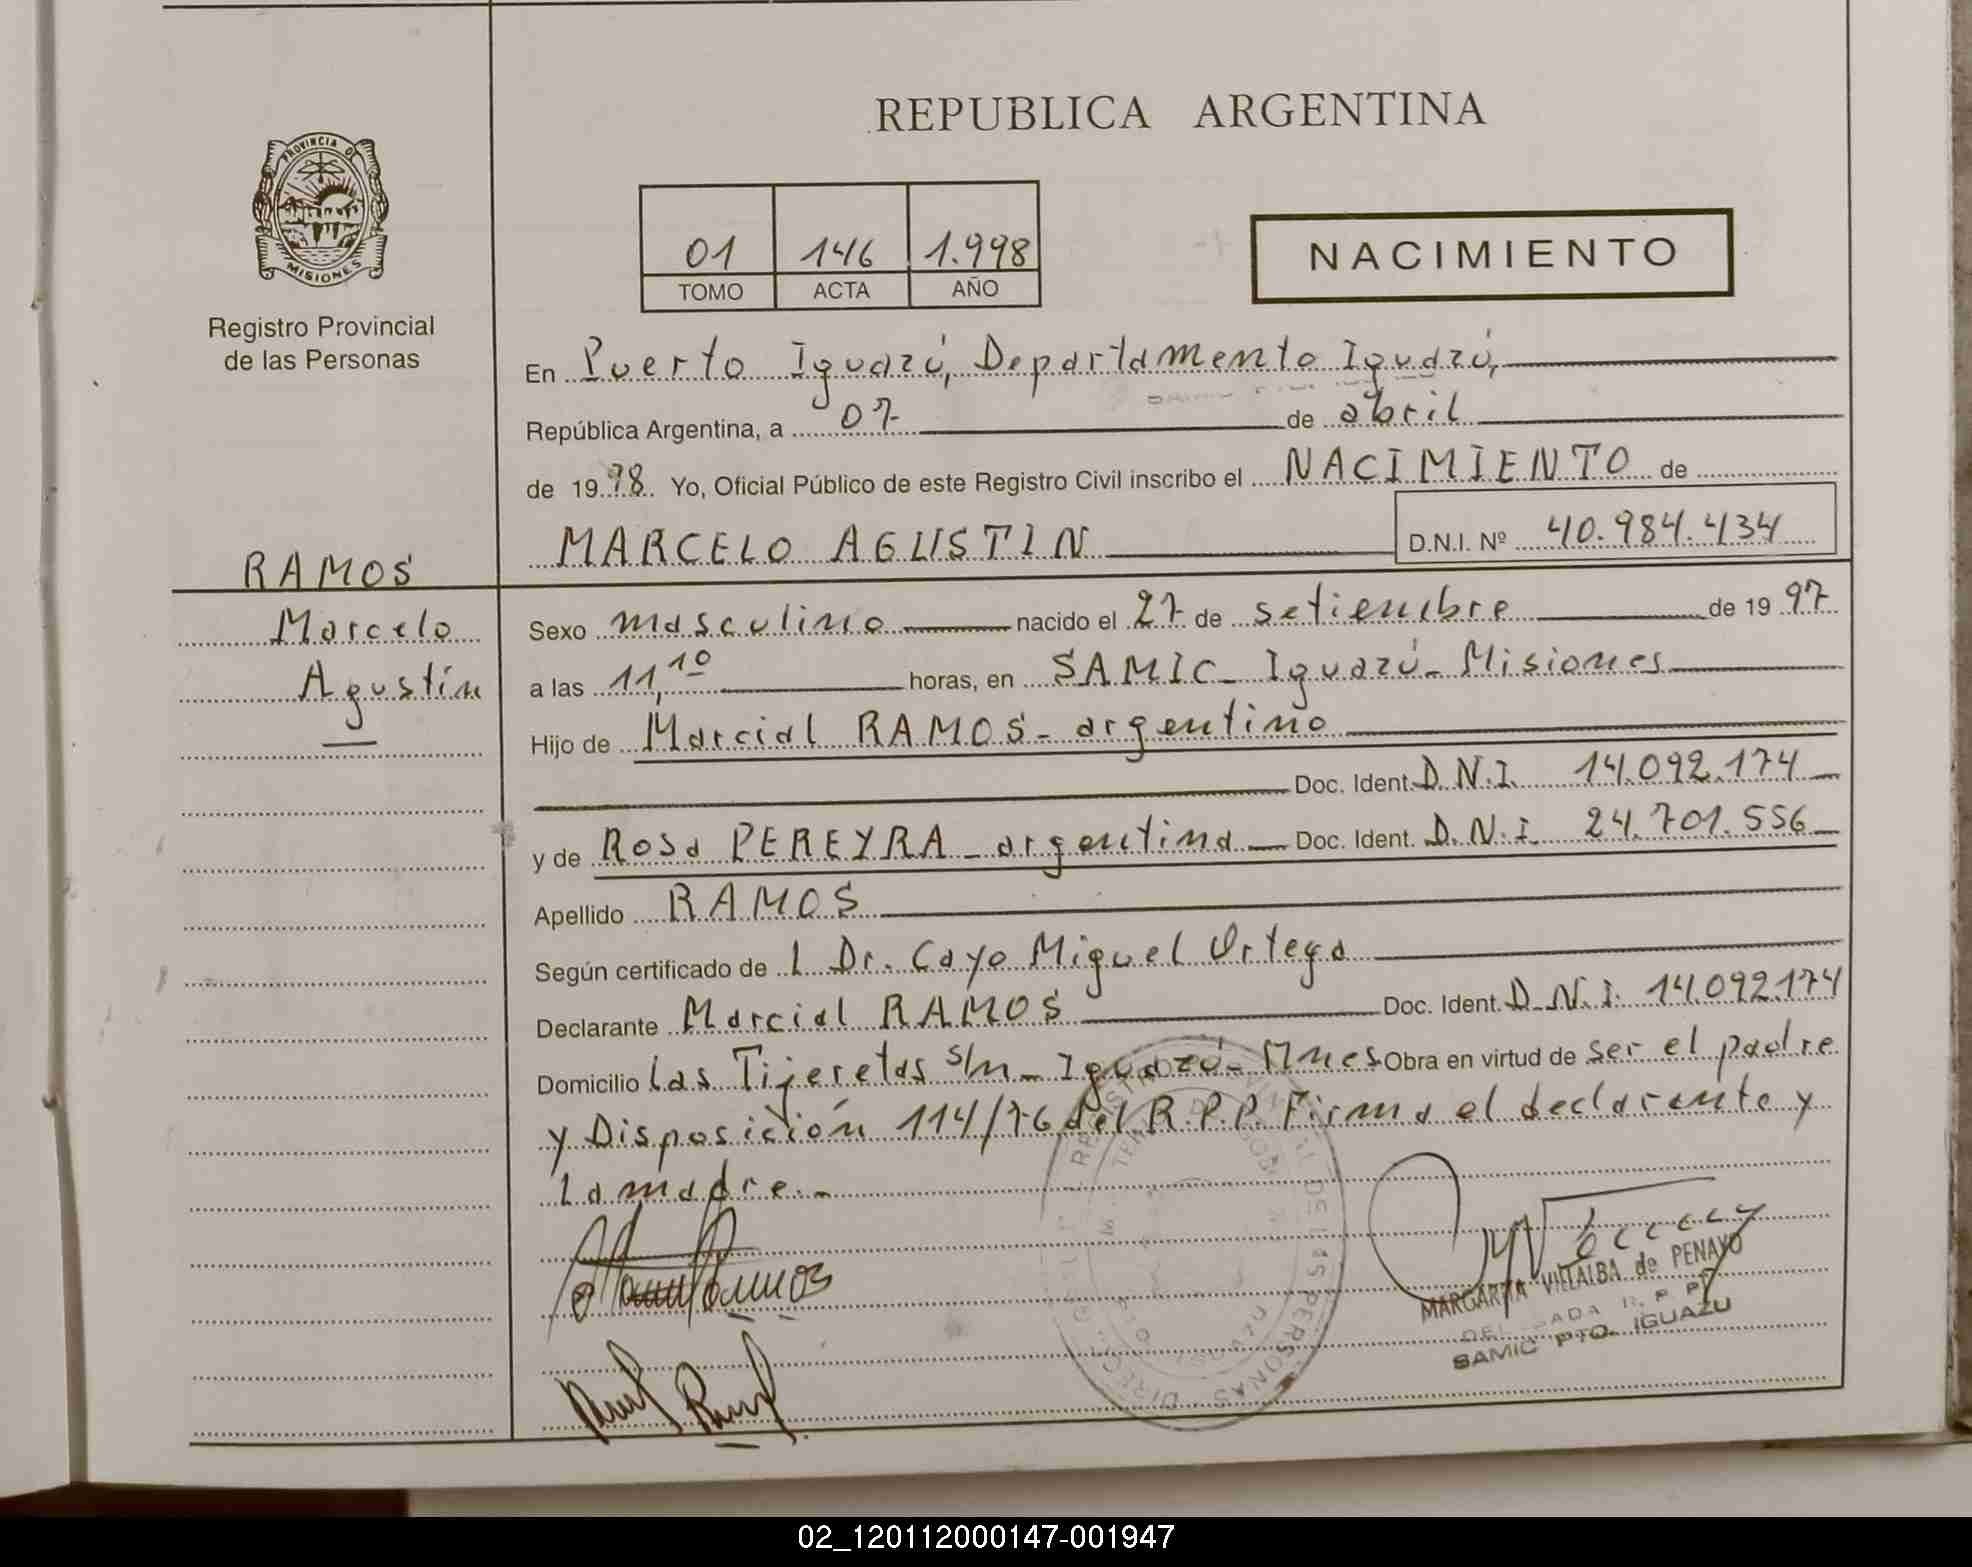 REPUBLICA ARGENTINA
PROVINCIA DE
MISIONES
Registro Provincial
de las Personas
01 146 1.998
TOMO ACTA AÑO
NACIMIENTO
En Puerto Iguazú, Departamento Iguazú,
República Argentina, a 07 de abril
de 1998. Yo, Oficial Público de este Registro Civil inscribo el NACIMIENTO de
MARCELO AGUSTIN D.N.I. Nº 40.984.434
RAMOS
Marcelo
Agustín
Sexo masculino nacido el 27 de setiembre de 1997
a las 11,10 horas, en SAMIC - Iguazú - Misiones
Hijo de Marcial RAMOS - argentino
Doc. Ident. D.N.I. 14.092.174
y de Rosa PEREYRA - argentina Doc. Ident. D.N.I. 24.701.556
Apellido RAMOS
Según certificado de l Dr. Cayo Miguel Ortega
Declarante Marcial RAMOS Doc. Ident. D.N.I. 14.092.174
Domicilio Las Tijeretas s/n - Iguazú - Mnes Obra en virtud de ser el padre
y Disposición 114/76 del R.P.P. Firma el declarante y
La madre.-
MARGARITA VILLALBA de PENAYO
R. P. P.
SAMIC PTO. IGUAZU
02_120112000147-001947